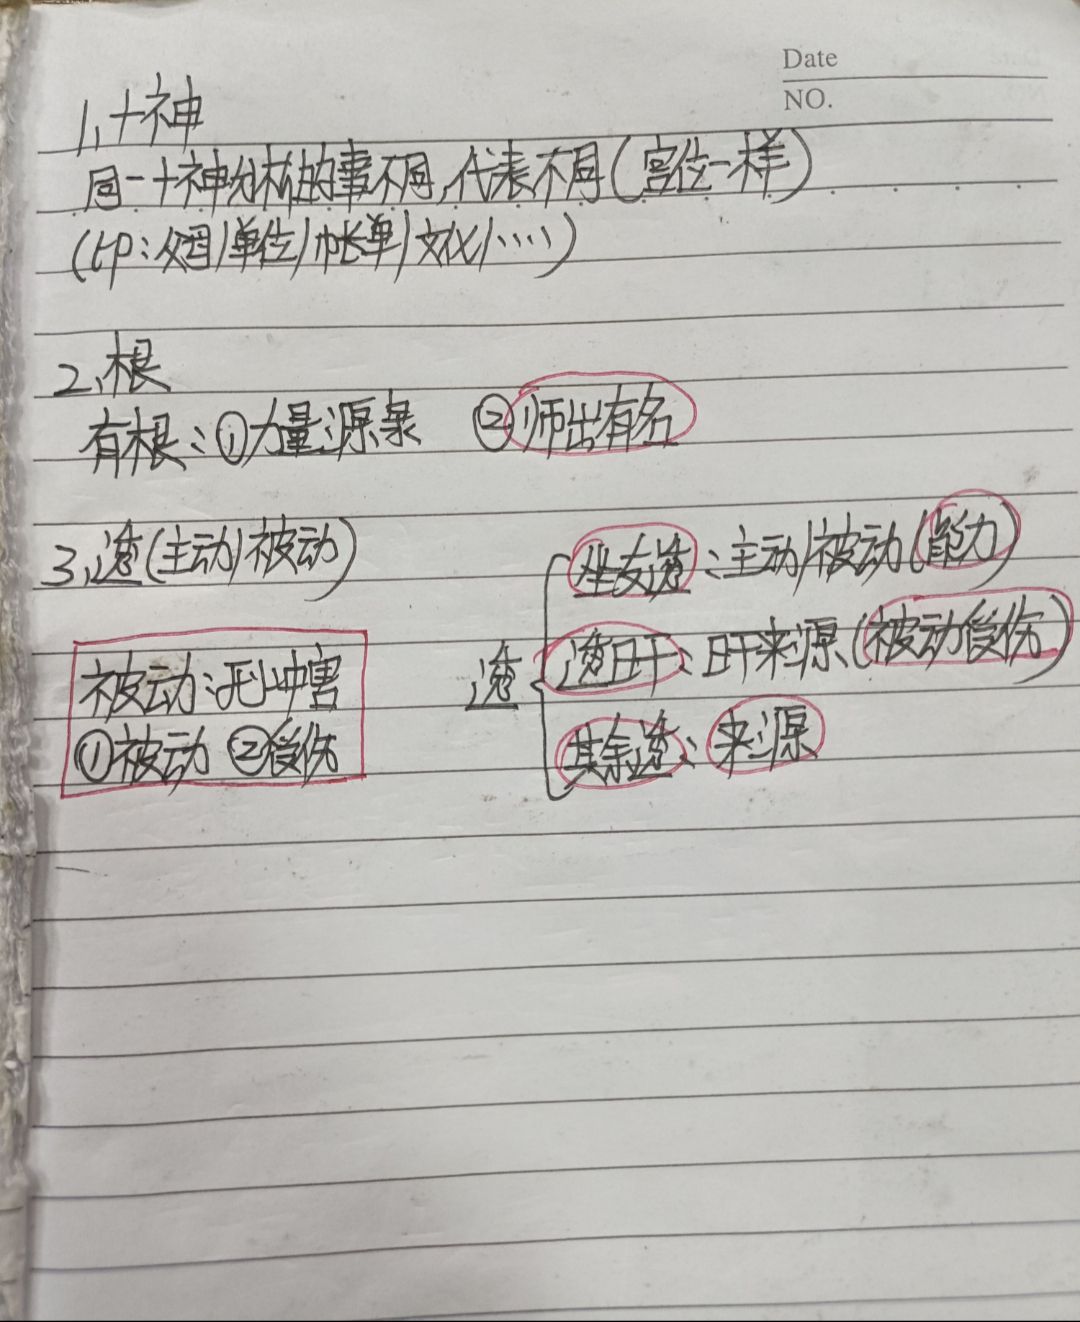 Date
NO.
1、十神
同一十神分析的事不同,代表不同(宫位一样)
(印:烟/单位/帐单/文化/····)
2、根
有根:①力量源泉 ②师出有名
3、透(主动/被动)
坐支透:主动/被动(能力)
被动:刑冲害
透 透日干:日干来源(被动受伤)
①被动 ②受伤
其余透:来源